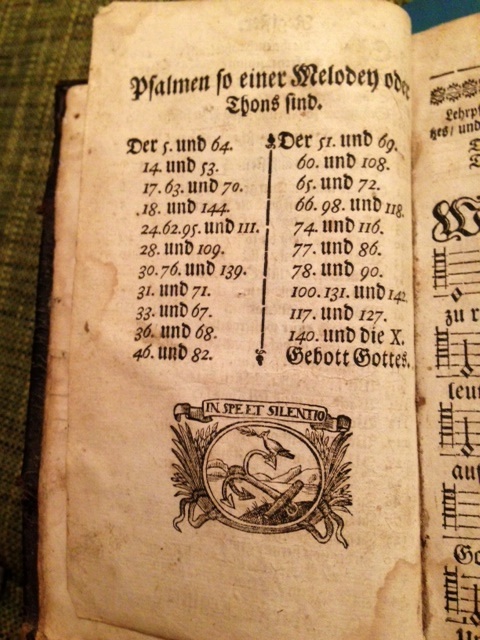 Psalmen so einer Melodey oder
Thons sind.
Der 5. und 64.
14. und 53.
17. 63. und 70.
18. und 144.
24. 62. 95. und 111.
28. und 109.
30. 76. und 139.
31. und 71.
33. und 67.
36. und 68.
46. und 82.
Der 51. und 69.
60. und 108.
65. und 72.
66. 98. und 118.
74. und 116.
77. und 86.
78. und 90.
100. 131. und 142.
117. und 127.
140. und die X.
Gebott Gottes.
IN SPE ET SILENTIO
Lehrps
tzes/ und
W
zu r
leun
auf
Go